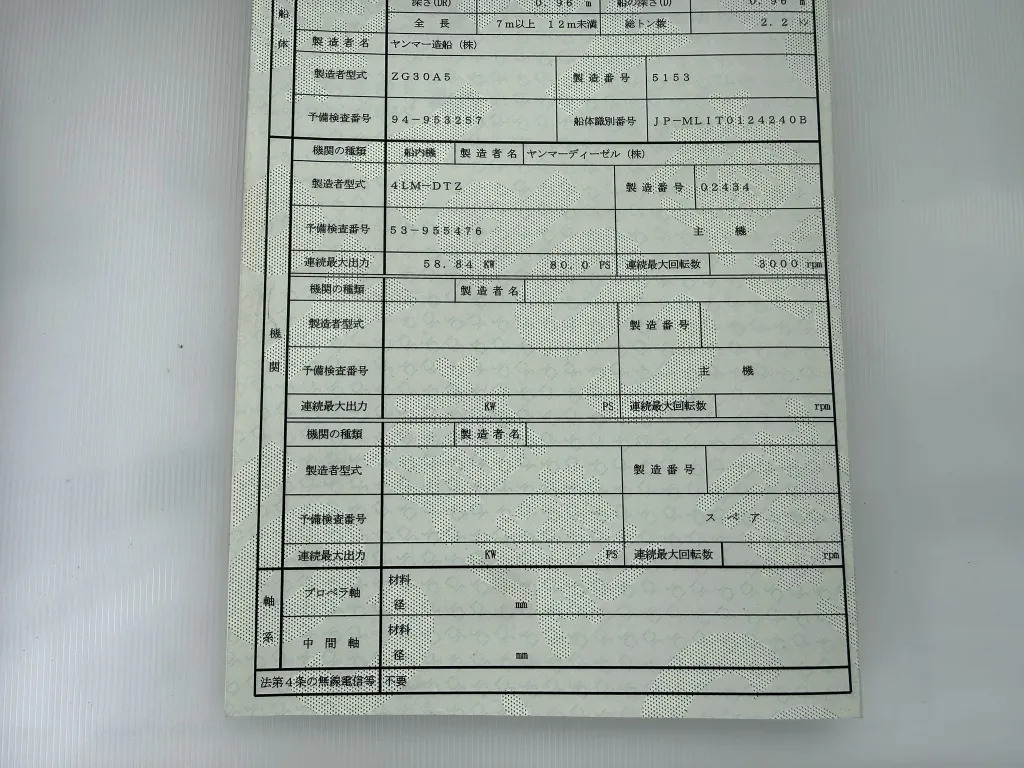 深さ(DR) 0.96 m 船の深さ(D) 0.96 m
全長 7m以上 12m未満 総トン数 2.2 トン
船体
製造者名 ヤンマー造船（株）
製造者型式 ZG30A5 製造番号 5153
予備検査番号 94-953257 船体識別番号 JP-MLIT0124240B
機関
機関の種類 船内機 製造者名 ヤンマーディーゼル（株）
製造者型式 4LM-DTZ 製造番号 02434
予備検査番号 53-955476 主機
連続最大出力 58.84 KW 80.0 PS 連続最大回転数 3000 rpm
機関の種類 製造者名
製造者型式 製造番号
予備検査番号 主機
連続最大出力 KW PS 連続最大回転数 rpm
機関の種類 製造者名
製造者型式 製造番号
予備検査番号 スペア
連続最大出力 KW PS 連続最大回転数 rpm
軸系
プロペラ軸 材料
径 mm
中間軸 材料
径 mm
法第4条の無線電信等 不要